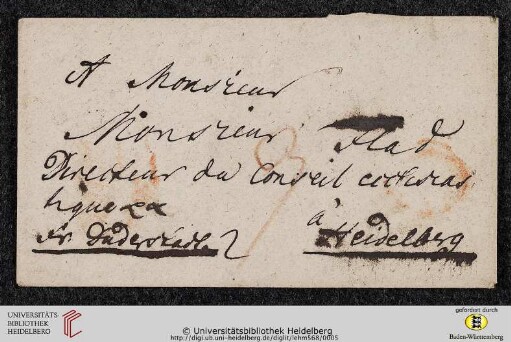 A Monsieur
Monsieur Flad
Directeur du Conseil ecclesias
tique
fr. Duderstadt
à
Heidelberg
UNIVERSITÄTS-
BIBLIOTHEK
HEIDELBERG
© Universitätsbibliothek Heidelberg
http://digi.ub.uni-heidelberg.de/diglit/lehm568/0005
gefördert durch
Baden-Württemberg